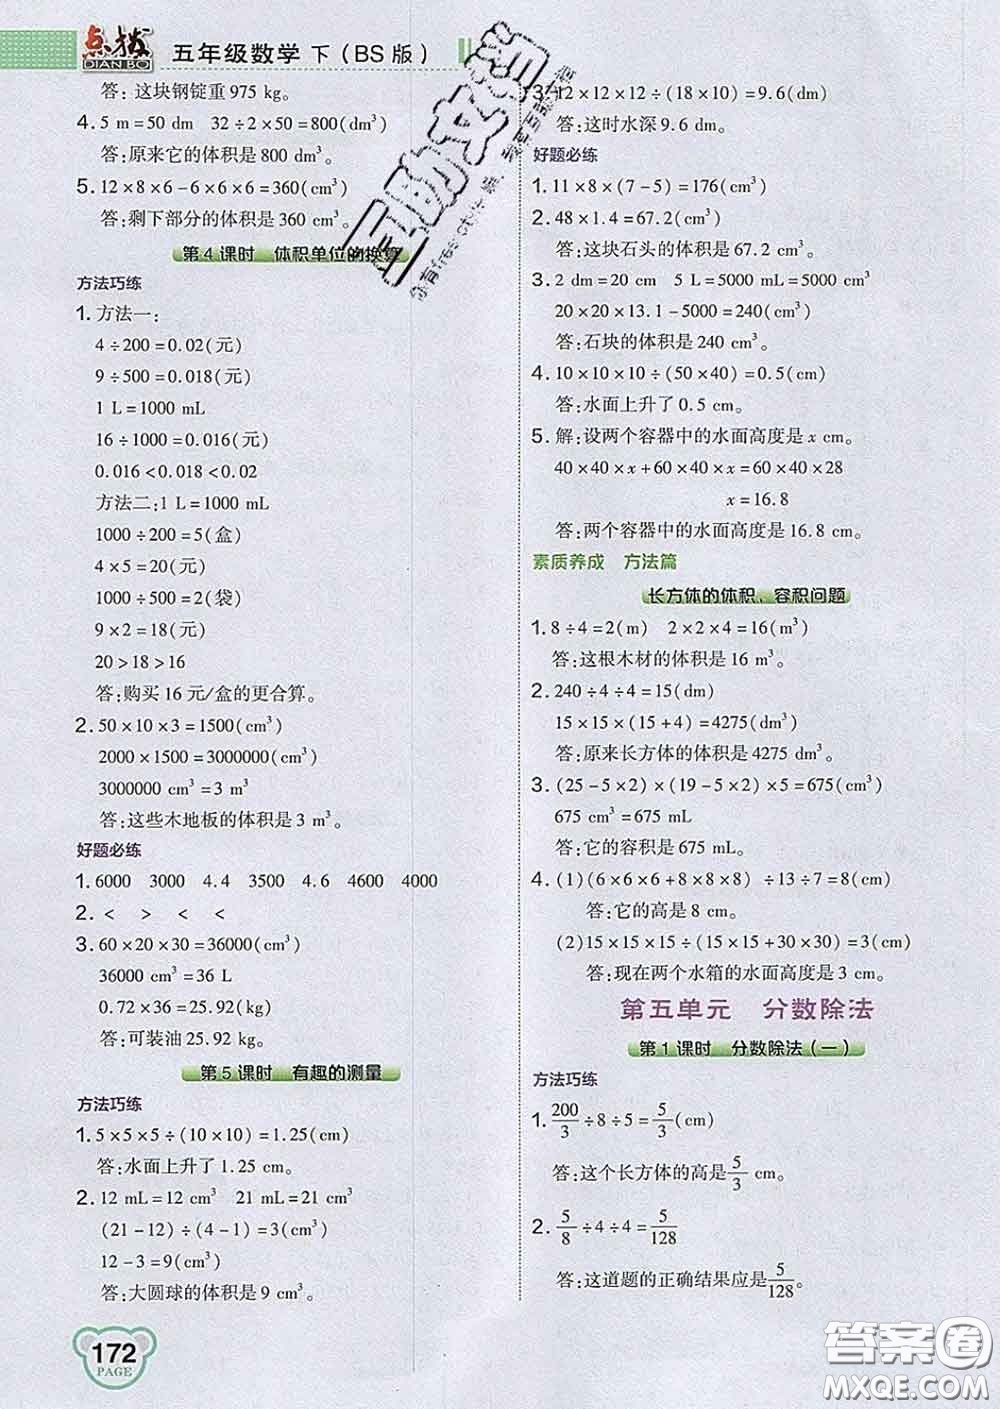 点拨
DIAN BO
五年级数学 下(BS版)
答: 这块钢锭重975 kg。
4. 5 m=50 dm 32÷2×50=800(dm³)
答:原来它的体积是800 dm³。
5. 12×8×6-6×6×6=360(cm³)
答:剩下部分的体积是360 cm³。
第4课时 体积单位的换算
方法巧练
1. 方法一:
4÷200=0.02(元)
9÷500=0.018(元)
1 L=1000 mL
16÷1000=0.016(元)
0.016<0.018<0.02
方法二:1 L=1000 mL
1000÷200=5(盒)
4×5=20(元)
1000÷500=2(袋)
9×2=18(元)
20>18>16
答:购买16元/盒的更合算。
2. 50×10×3=1500(cm³)
2000×1500=3000000(cm³)
3000000 cm³=3 m³
答:这些木地板的体积是3 m³。
好题必练
1. 6000 3000 4.4 3500 4.6 4600 4000
2. < > < <
3. 60×20×30=36000(cm³)
36000 cm³=36 L
0.72×36=25.92(kg)
答:可装油25.92 kg。
第5课时 有趣的测量
方法巧练
1. 5×5×5÷(10×10)=1.25(cm)
答:水面上升了1.25 cm。
2. 12 mL=12 cm³ 21 mL=21 cm³
(21-12)÷(4-1)=3(cm³)
12-3=9(cm³)
答:大圆球的体积是9 cm³。
172
PAGE
3. 12×12×12÷(18×10)=9.6(dm)
答:这时水深9.6 dm。
好题必练
1. 11×8×(7-5)=176(cm³)
2. 48×1.4=67.2(cm³)
答:这块石头的体积是67.2 cm³。
3. 2 dm=20 cm 5 L=5000 mL=5000 cm³
20×20×13.1-5000=240(cm³)
答:石块的体积是240 cm³。
4. 10×10×10÷(50×40)=0.5(cm)
答:水面上升了0.5 cm。
5. 解:设两个容器中的水面高度是x cm。
40×40×x+60×40×x=60×40×28
x=16.8
答:两个容器中的水面高度是16.8 cm。
素质养成 方法篇
长方体的体积、容积问题
1. 8÷4=2(m) 2×2×4=16(m³)
答:这根木材的体积是16 m³。
2. 240÷4÷4=15(dm)
15×15×(15+4)=4275(dm³)
答:原来长方体的体积是4275 dm³。
3. (25-5×2)×(19-5×2)×5=675(cm³)
675 cm³=675 mL
答:它的容积是675 mL。
4. (1)(6×6×6+8×8×8)÷13÷7=8(cm)
答:它的高是8 cm。
(2)15×15×15÷(15×15+30×30)=3(cm)
答:现在两个水箱的水面高度是3 cm。
第五单元 分数除法
第1课时 分数除法(一)
方法巧练
1. 200/3÷8÷5=5/3(cm)
答:这个长方体的高是5/3 cm。
2. 5/8÷4÷4=5/128
答:这道题的正确结果应是5/128。
答案圈
MXQE.COM